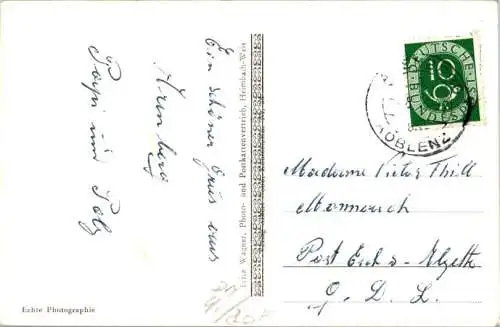 Ein schöner Gruss aus
Arenberg
Papi und
Echte Photographie
Fritz Wagner, Photo- und Postkartenvertrieb, Heimbach-Weis
DEUTSCHE
BUNDESPOST
10
KOBLENZ
Madame Victor Thill
Post Esch s. Alzette
G. D. L.